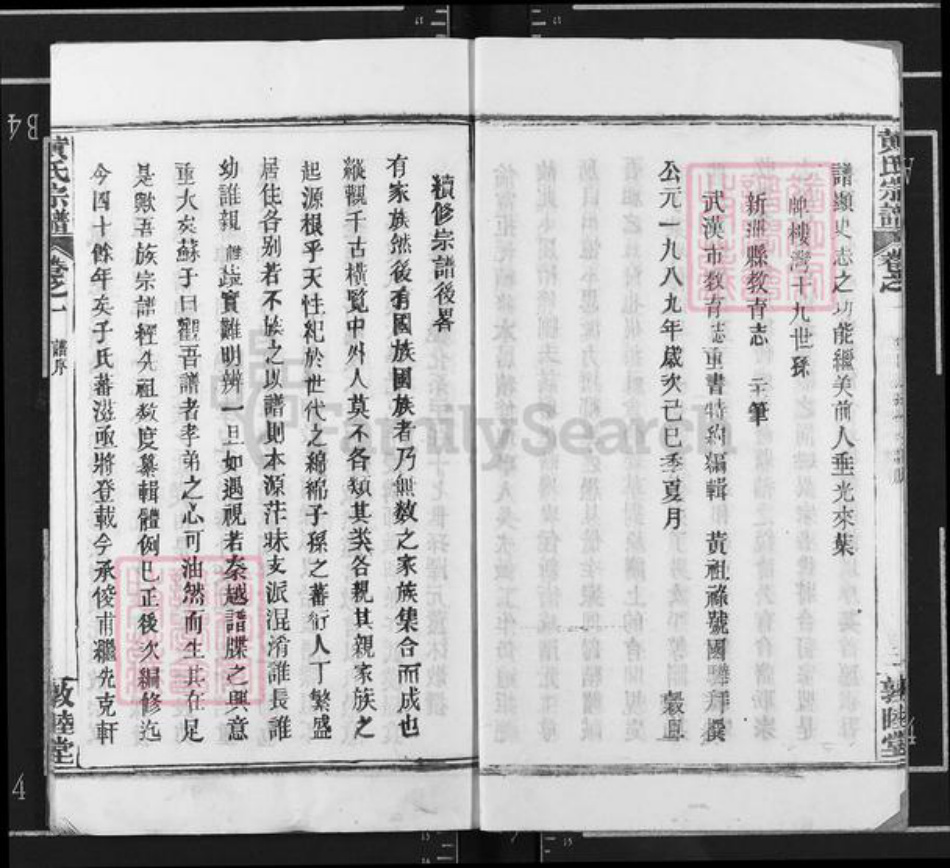 黃氏宗譜
卷之一
敦睦堂
譜纘史志之功能繼美前人垂光來葉
牌樓灣十九世孫
新洲縣教育志 主筆
武漢市教育志重書特約編輯 黃祖祿號國 拜撰
穀旦
公元一九八九年歲次己巳季夏月
續修宗譜後畧
有家族然後有國族國族者乃無數之家族集合而成也
縱觀千古橫覽中外人莫不各類其类各親其親家族之
起源根乎天性紀於世代之綿綿子孫之蕃衍人丁繁盛
居住各别若不族之以譜則本源茫昧支派混淆誰長誰
幼誰親誰疏實難明辨一旦如遇視若秦越譜牒之興意
重大矣蘇子曰觀吾譜者孝弟之心可油然而生其在足
是歟吾族宗譜經先祖数度纂輯體例巳正後次編修迄
今四十餘年矣子氏蕃滋亟將登載今承俊甫繼先克軒
黃氏宗譜
卷之一
譜序
敦睦堂
FamilySearch
B4
4